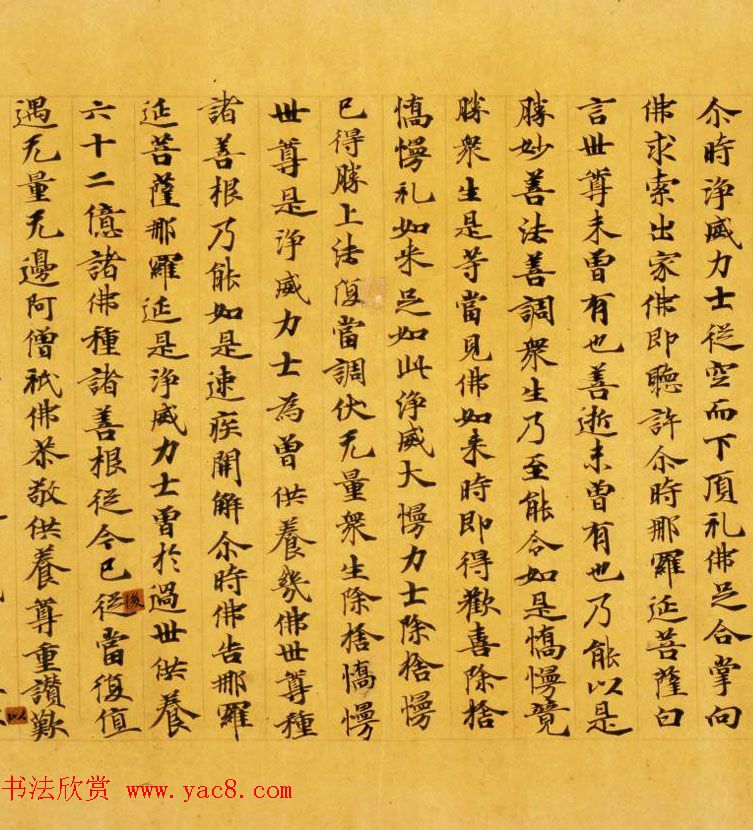 尒時浄威力士從空而下頂礼佛足合掌向
佛求索出家佛即聽許尒時那羅延菩薩白
言世尊未曽有也善逝未曽有也乃能以是
勝妙善法善調衆生乃至能令如是憍慢競
勝衆生是等當見佛如来時即得歡喜除捨
憍慢礼如来足如此浄威大慢力士除捨慢
已得勝上法復當調伏无量衆生除捨憍慢
世尊是浄威力士為曽供養幾佛世尊種
諸善根乃能如是速疾開解尒時佛告那羅
延菩薩那羅延是浄威力士曽於過世供養
六十二億諸佛種諸善根從今已從當復值
後
遇无量无邊阿僧祇佛恭敬供養尊重讃歎
以
书法欣赏 www.yac8.com